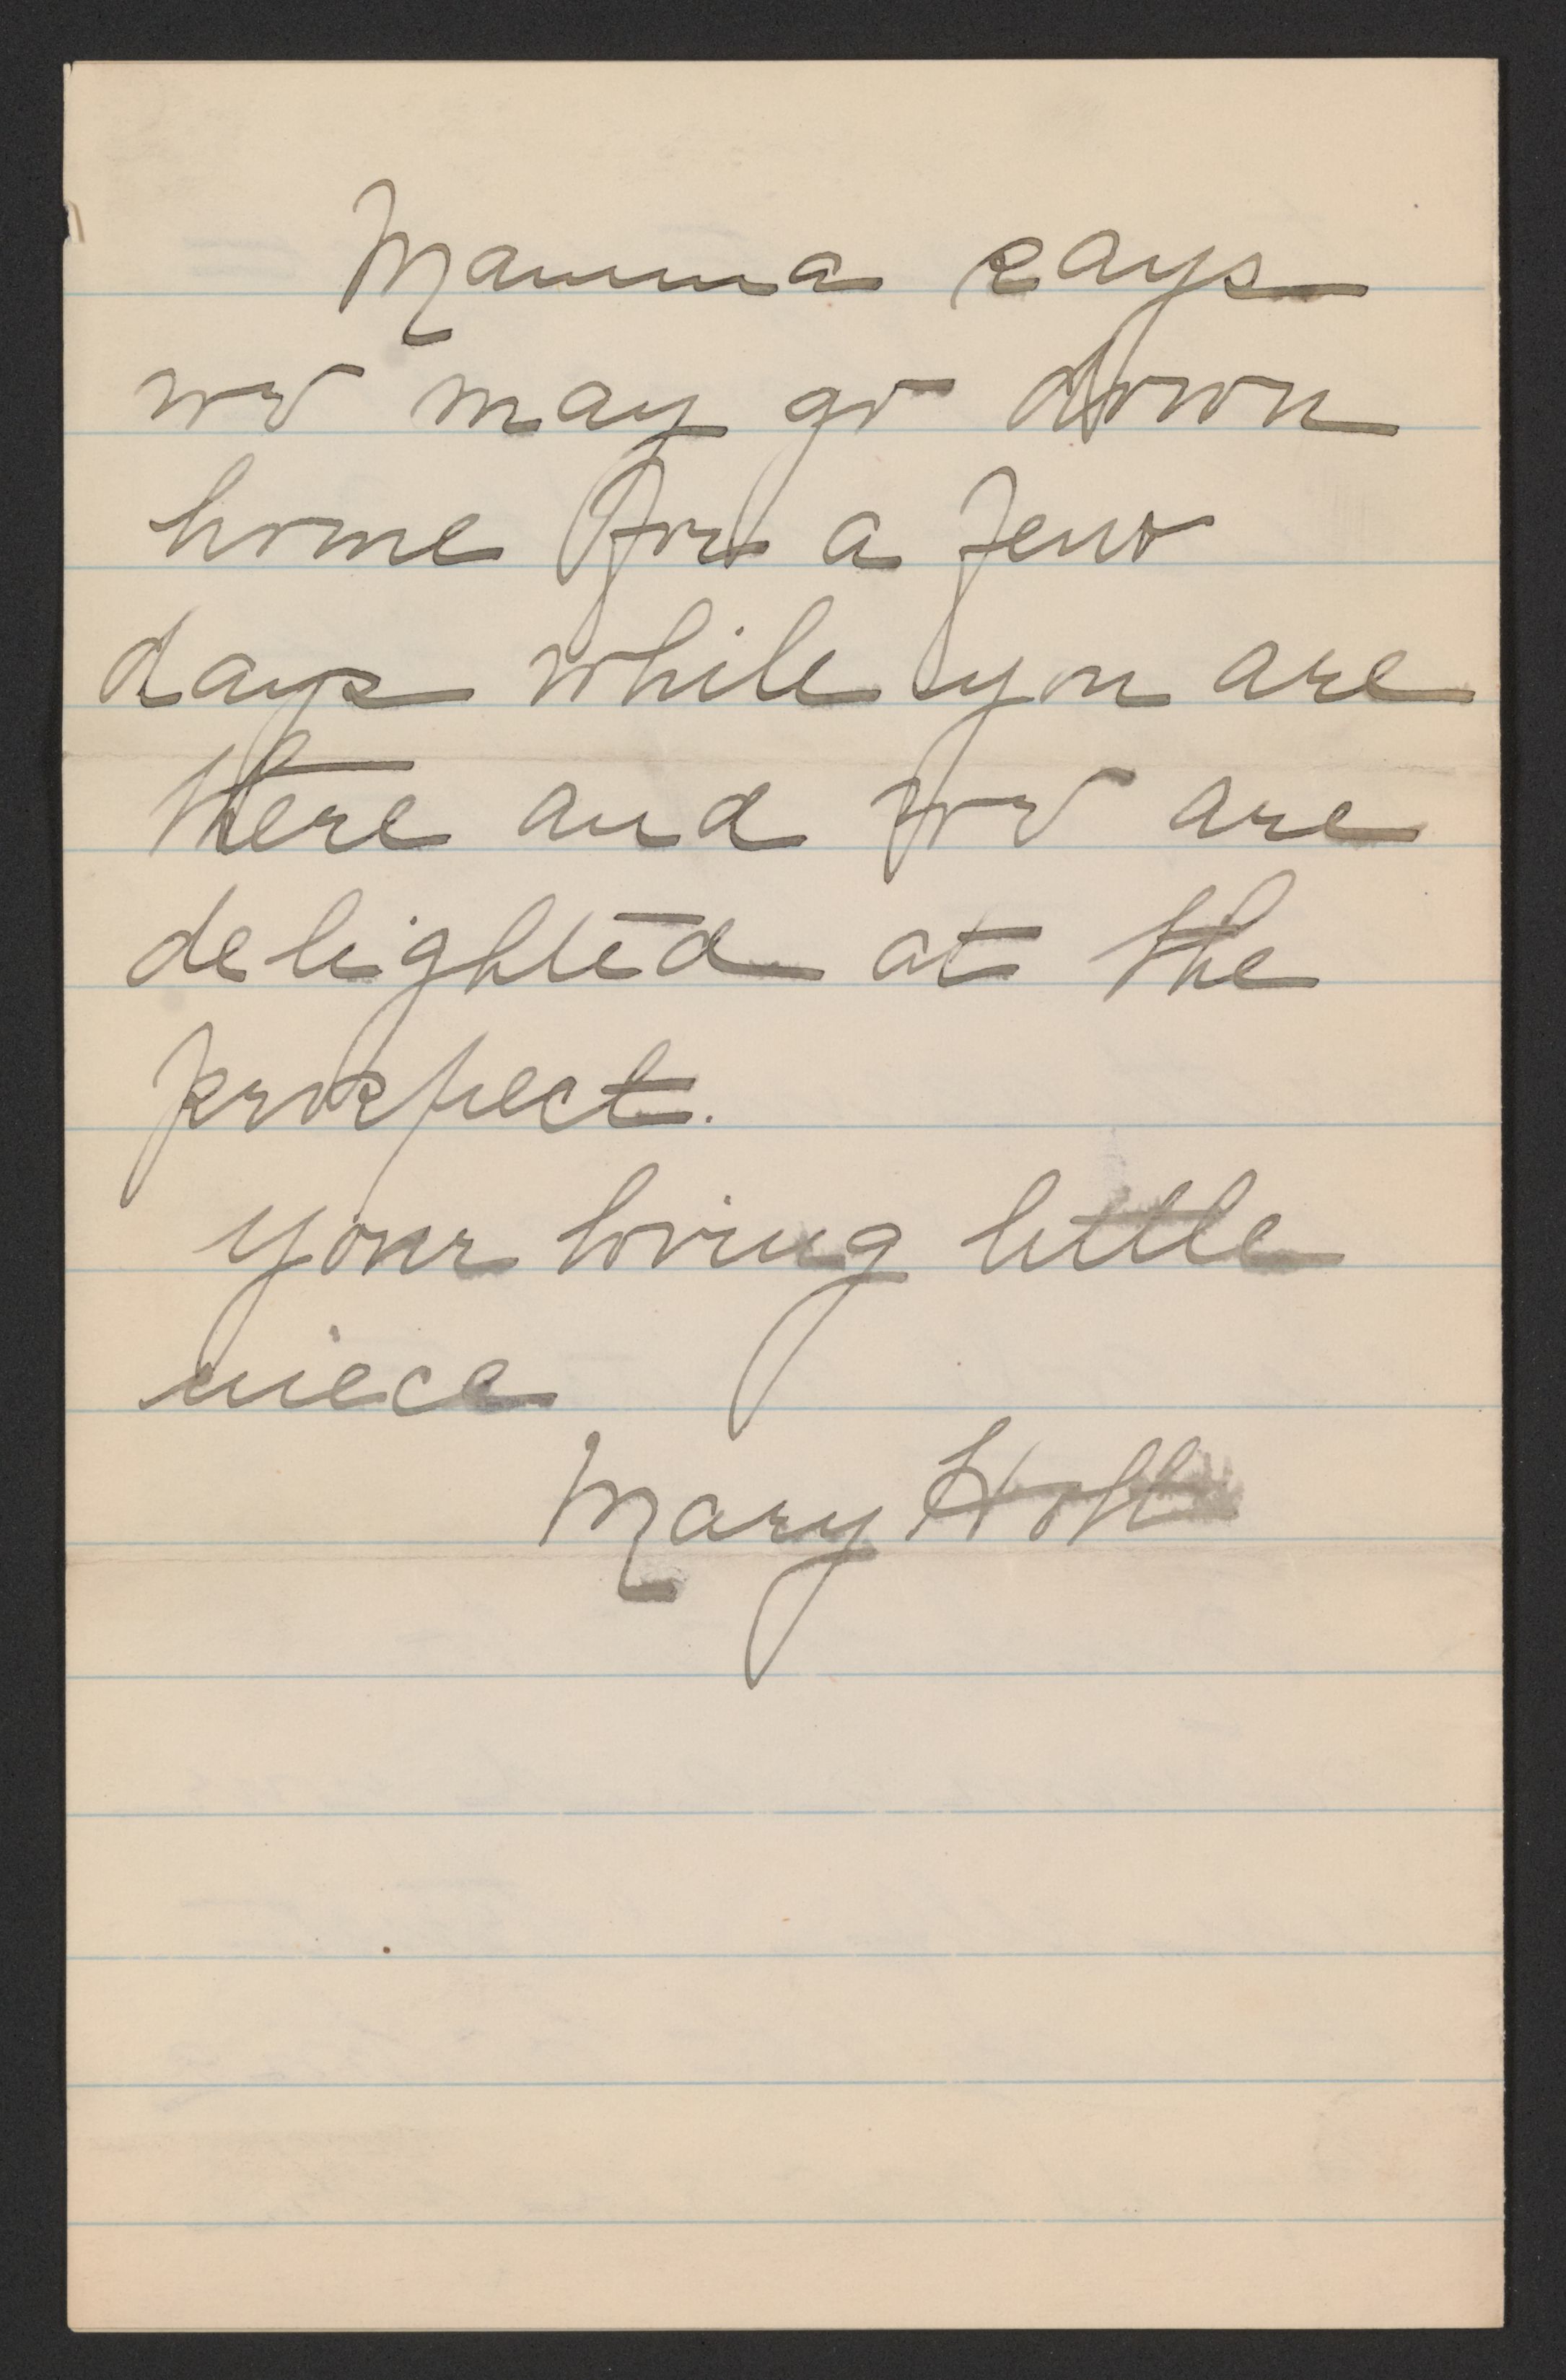 Mamma says
we may go down
home for a few
days while you are
there and we are
delighted at the
prospect.
your loving little
niece
Mary